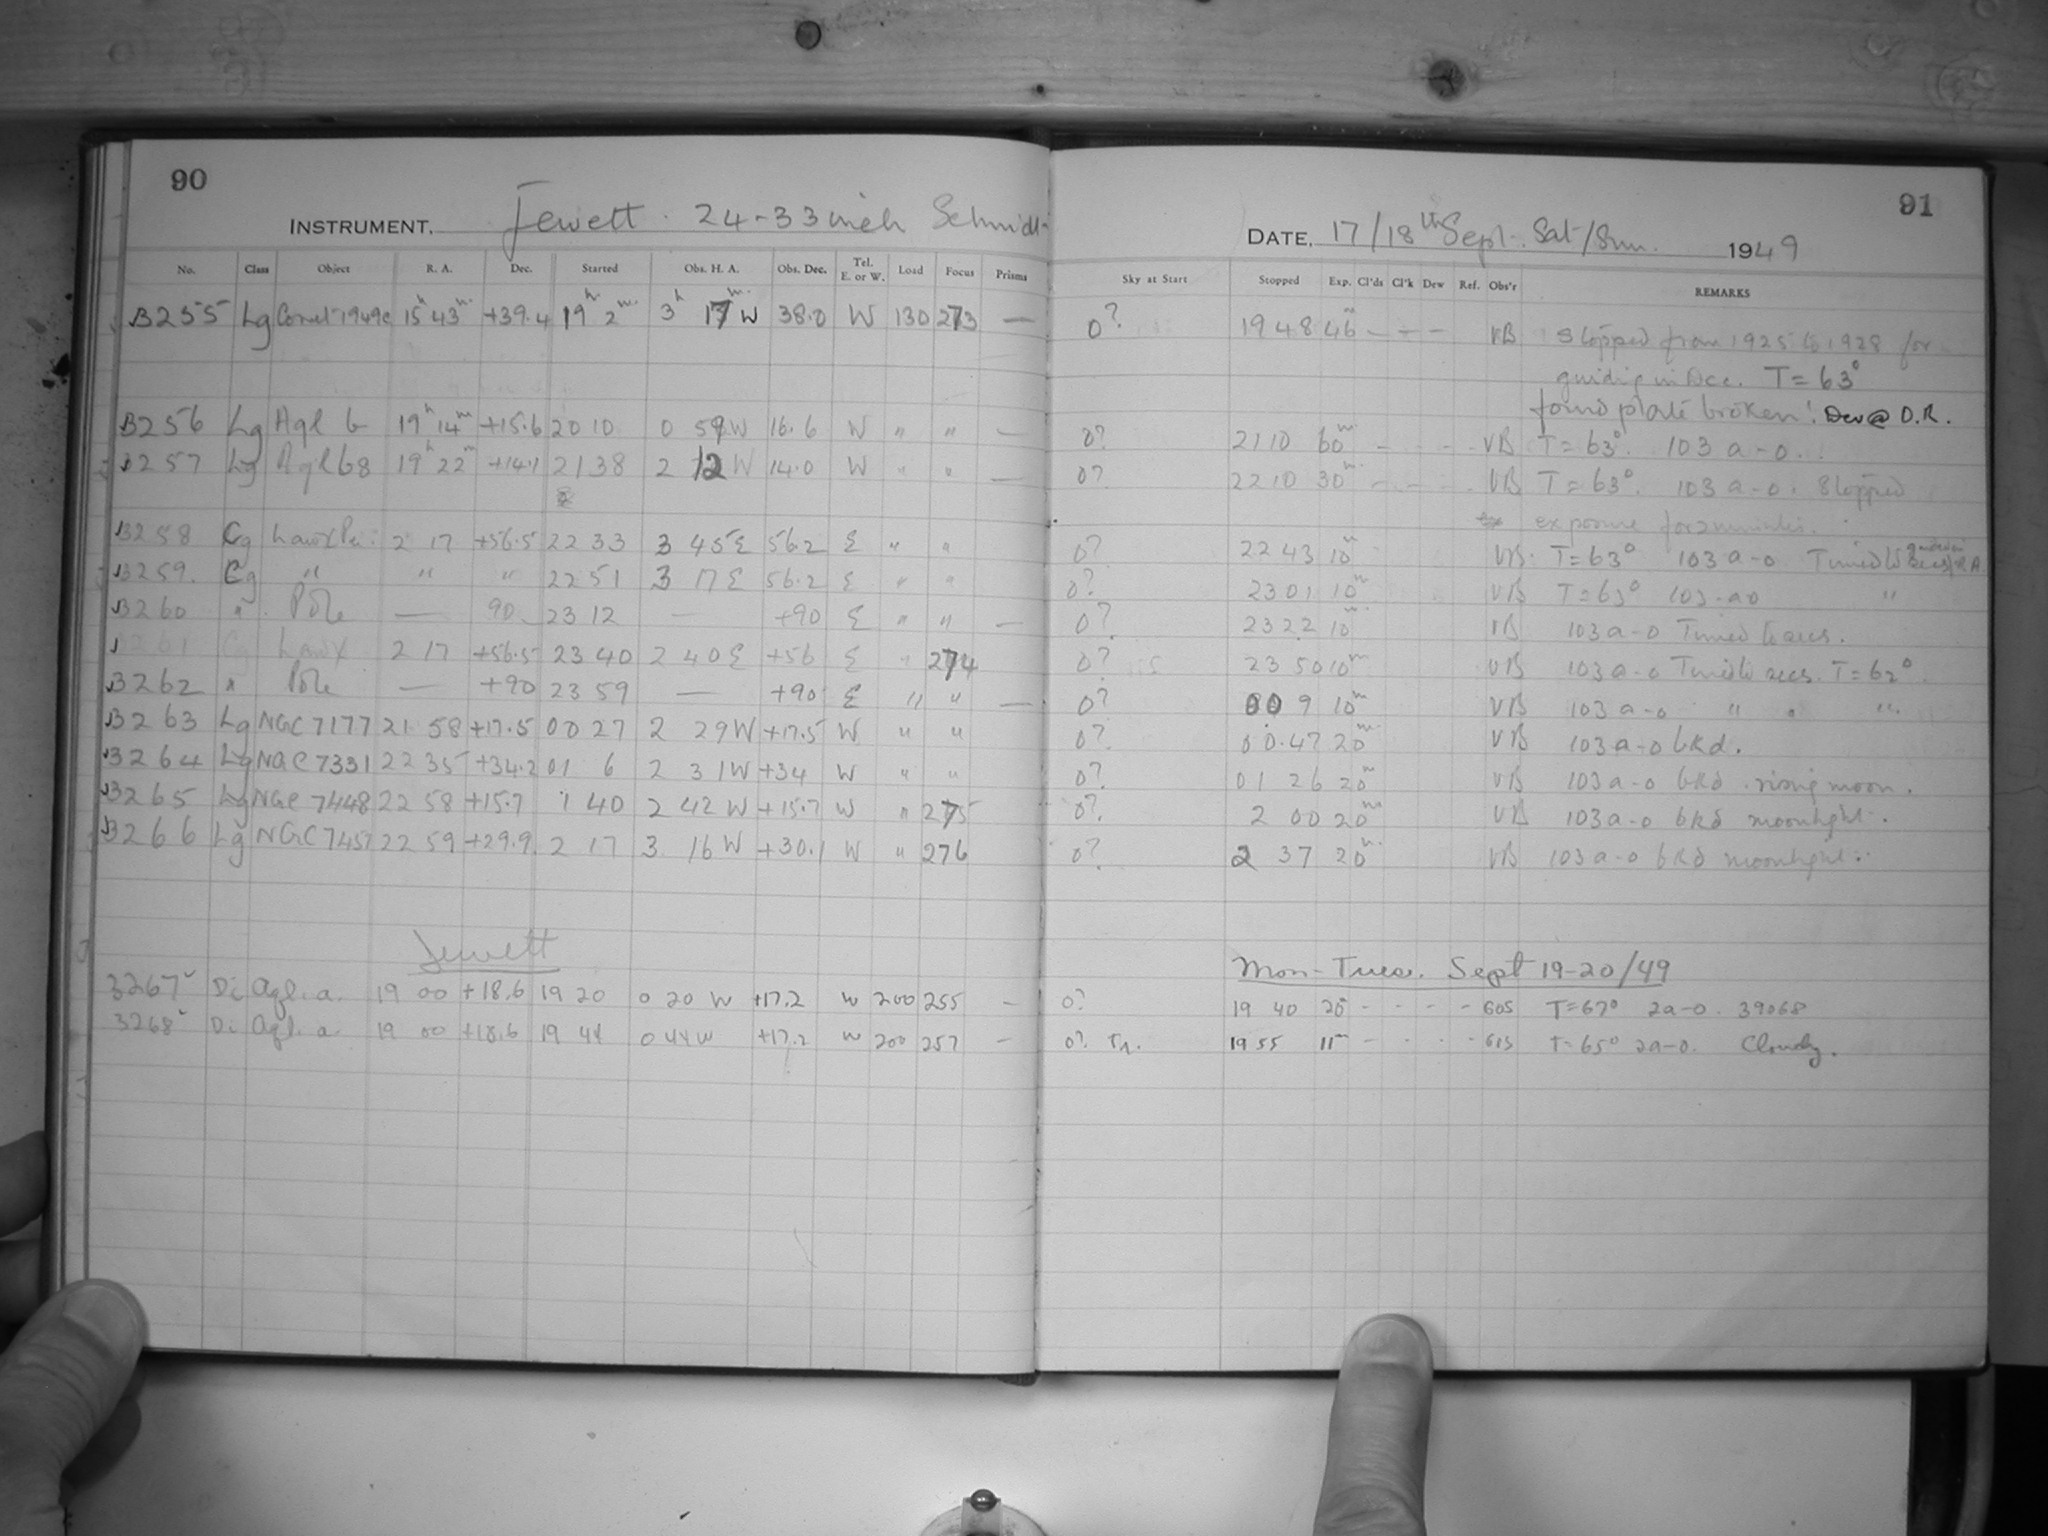 90
INSTRUMENT. Jewett 24-33 inch Schmidt
No. Class Object R. A. Dec. Started Obs. H. A. Obs. Dec. Tel. E. or W. Load Focus Prisms
B255 Lg Comet 1949c 15h 43m +39.4 19h 2m 3h 17m W 38.0 W 130 273 —
B256 Lg Aql 6 19h 14m +15.6 20 10 0 59W 16.6 W " " —
B257 Lg Aql 68 19h 22m +14.1 21 38 2 12 W 14.0 W " " —
B258 Cg 2 17 +56.5 22 33 3 45E 56.2 E " "
B259. Cg " " " 22 51 3 17E 56.2 E " "
B260 " Pole — 90 23 12 — +90 E " " —
2 17 +56.5 23 40 2 40E +56 E " 274
B262 " Pole — +90 23 59 — +90 E " " —
B263 Lg NGC 7177 21 58 +17.5 00 27 2 29W +17.5 W " "
B264 Lg NGC 7331 22 35 +34.2 01 6 2 31W +34 W " "
B265 Lg NGC 7448 22 58 +15.7 1 40 2 42 W +15.7 W " 275
B266 Lg NGC 7457 22 59 +29.9 2 17 3 16W +30.1 W " 276
Jewett
3267 Di Aql. a. 19 00 +18.6 19 20 0 20 W +17.2 W 200 255 —
3268 Di Aql. a. 19 00 +18.6 19 44 0 44W +17.2 W 200 257 —
91
DATE. 17/18th Sept. Sat/Sun. 1949
Sky at Start Stopped Exp. Cl'ds Cl'k Dew Ref. Obs'r REMARKS
0? 19 48 46m — — — VB Stopped from 1925 to 1928 for
guiding in Dec. T=63°
found plate broken! Dev @ O.R.
0? 21 10 60m - - - VB T=63°. 103 a-o.
0? 22 10 30m - - - VB T=63°. 103 a-o. Stopped
exposure for 2 minutes.
0? 22 43 10m VB. T=63° 103 a-o
0? 23 01 10m VB T=63° 103-ao "
0? 23 22 10m VB 103 a-o
0? 23 50 10m VB 103 a-o T=62°.
0? 00 9 10m VB 103 a-o " " "
0? 00.47 20m VB 103 a-o bkd.
0? 01 26 20m VB 103 a-o bkd. rising moon.
0? 2 00 20m VB 103 a-o bkd moonlight.
0? 2 37 20m VB 103 a-o bkd moonlight.
Mon-Tues. Sept 19-20/49
0? 19 40 20 - - - - T=67° 2a-o. 39068
0? 19 55 11m - - - - T=65° 2a-o. Cloudy.